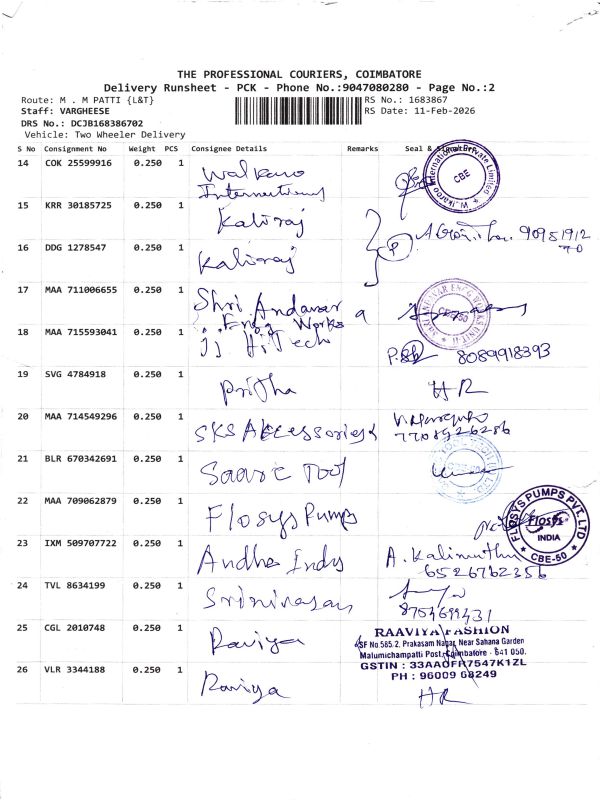 THE PROFESSIONAL COURIERS, COIMBATORE
Delivery Runsheet - PCK - Phone No.:9047080280 - Page No.:2
Route: M . M PATTI {L&T}
RS No.: 1683867
Staff: VARGHEESE
RS Date: 11-Feb-2026
DRS No.: DCJB168386702
Vehicle: Two Wheeler Delivery
S No Consignment No Weight PCS Consignee Details Remarks Seal &
14 COK 25599916 0.250 1
CBE
15 KRR 30185725 0.250 1 Kaliraj
16 DDG 1278547 0.250 1 Kaliraj
17 MAA 711006655 0.250 1 Shri Andavar
Engg Works
18 MAA 715593041 0.250 1 Hitech
8089918393
19 SVG 4784918 0.250 1 Pritha HR
20 MAA 714549296 0.250 1 SKS Accessories
7708926286
21 BLR 670342691 0.250 1
22 MAA 709062879 0.250 1 Flosys Pumps
FLOSYS PUMPS PVT. LTD
Flosys
INDIA
CBE-50
23 IXM 509707722 0.250 1 Andhe Indy A. Kalimuthu
6526762356
24 TVL 8634199 0.250 1 Srinivasan
25 CGL 2010748 0.250 1 Raviya
RAAVIYA FASHION
SF No.585.2, Prakasam Nagar, Near Sahana Garden
Malumichampatti Post, Coimbatore - 641 050.
GSTIN : 33AAOFR7547K1ZL
PH : 96009 68249
26 VLR 3344188 0.250 1 Raviya HR